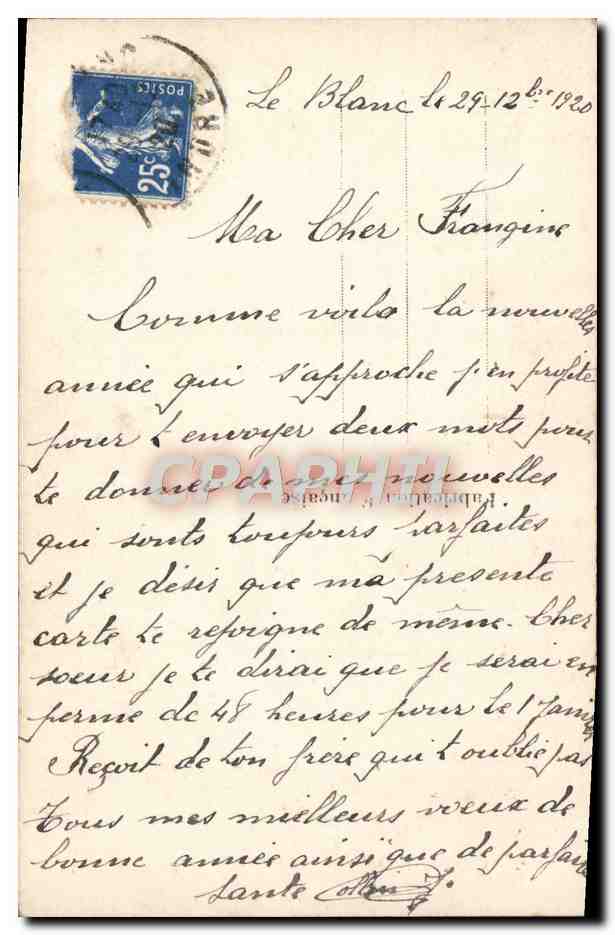 POSTES
25c
Le Blanc le 29-12bre 1920
Ma Cher Frangine
Comme voila la nouvelles
année qui s'approche j'en profite
pour t envoyer deux mots pour
te donner de mes nouvelles
CPARHTI
Fabrication Française
qui sonts toujours parfaites
et je désir que ma presente
carte te rejoigne de même. Cher
soeur je te dirai que je serai en
perme de 48 heures pour le 1 Janvier
Reçoit de ton frère qui t oublie pas
Tous mes meilleurs voeux de
bonne année ainsi que de parfaite
sante